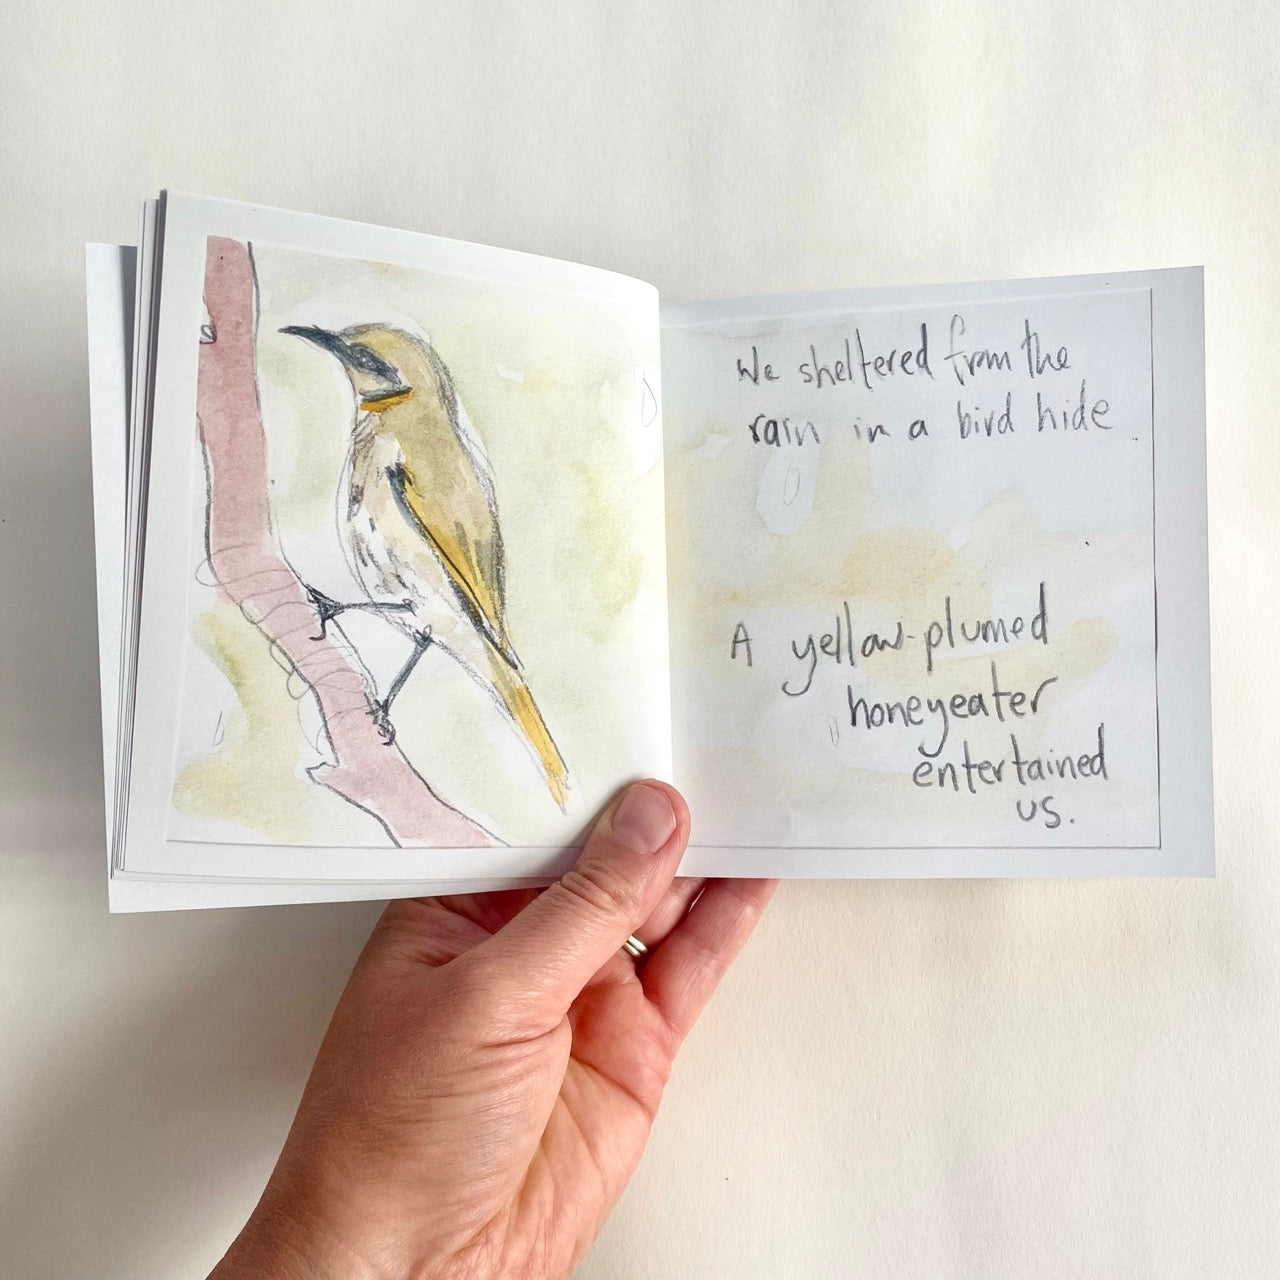 We sheltered from the
rain in a bird hide
A yellow-plumed
honeyeater
entertained
us.